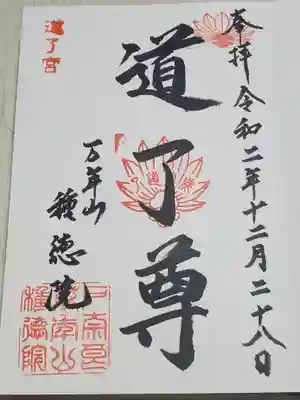 奉拝 令和二年十二月二十八日
道了尊
道了宮
万年山
種徳院